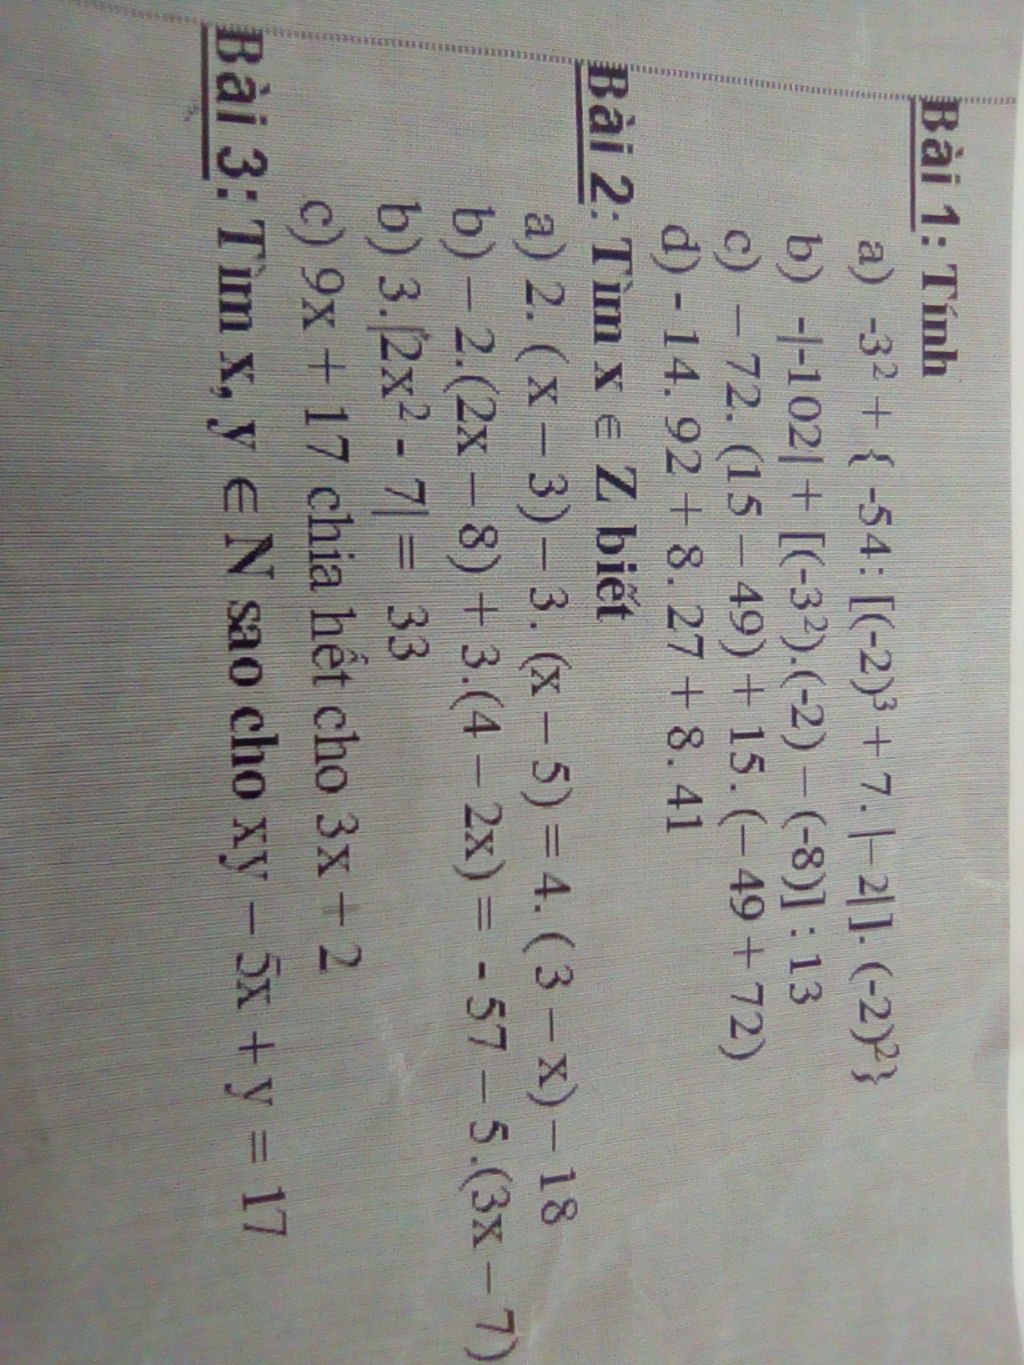 Bài 1: Tính
a) -3² + { -54: [(-2)³ + 7. |– 2|]. (-2)²}
b) -|-102| + [(-3²).(-2) – (-8)] : 13
c) – 72. (15 – 49) + 15. (– 49 + 72)
d) - 14. 92 + 8. 27 + 8. 41
Bài 2: Tìm x ∈ Z biết
a) 2. ( x – 3) – 3. (x – 5) = 4. ( 3 – x) – 18
b) – 2.(2x – 8) + 3.(4 – 2x) = - 57 – 5.(3x – 7)
b) 3.|2x² - 7| = 33
c) 9x + 17 chia hết cho 3x + 2
Bài 3: Tìm x, y ∈ N sao cho xy – 5x + y = 17